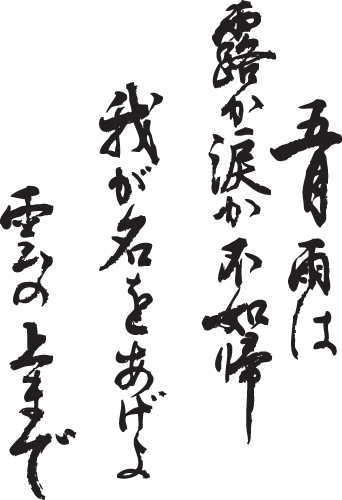 五月雨は
露か涙か不如帰
我が名をあげよ
雲の上まで